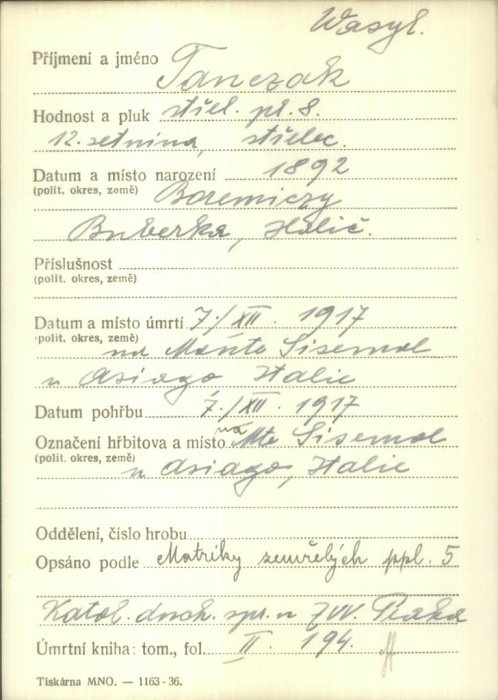 Wasyl.
Příjmení a jméno Tanczak
Hodnost a pluk střel. pl. 8.
12. setnina, střelec.
Datum a místo narození 1892
(polit. okres, země) Boremiczy
Buberka, Halič.
Příslušnost
(polit. okres, země)
Datum a místo úmrtí 7./XII. 1917
(polit. okres, země) na Monte Sisemol
u Asiago Italie
Datum pohřbu 7./XII. 1917
Označení hřbitova a místo na Mte Sisemol
(polit. okres, země) u Asiago, Italie
Oddělení, číslo hrobu
Opsáno podle Matriky zemřelých ppl. 5
Katol. duch. spr. u ZVV. Praha
Úmrtní kniha: tom., fol. II. 194.
Tiskárna MNO. — 1163-36.